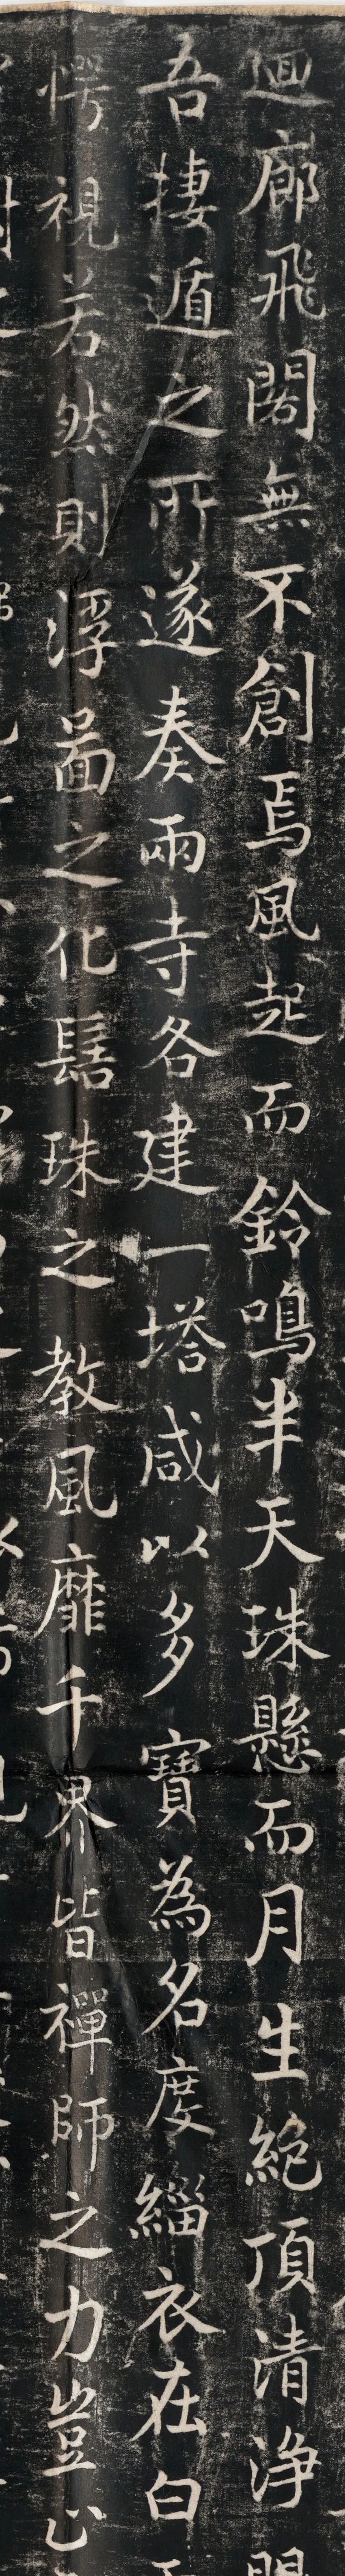 迴廊飛閣無不創焉風起而鈴鳴半天珠懸而月生絕頂清净
吾捿遁之所遂奏兩寺各建一塔咸以多寶為名度緇衣在白
愕視若然則浮啚之化髻珠之教風靡千界皆禪師之力豈